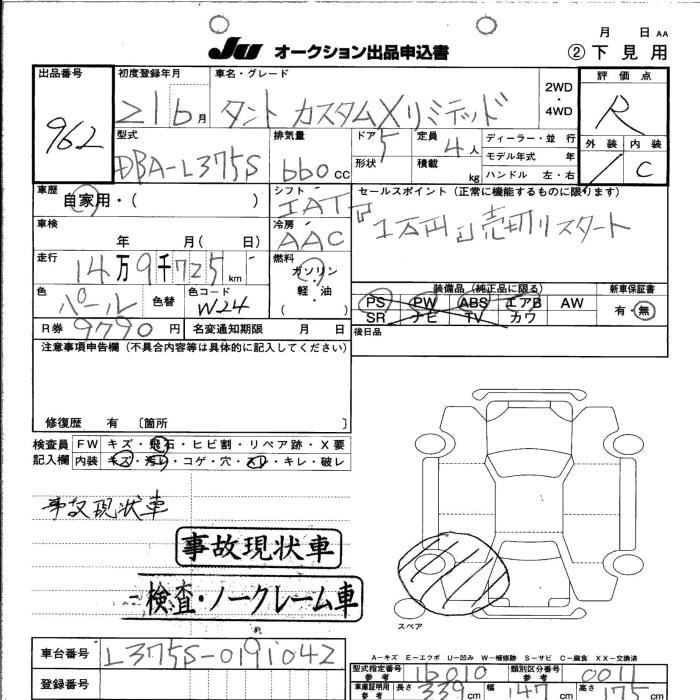 月 日 AA
JU オークション出品申込書 ②下見用
出品番号 962
初度登録年月 21 6月
車名・グレード タント カスタムXリミテッド
2WD・4WD
評価点 R
外装 内装 C
型式 DBA-L375S
排気量 660cc
ドア 5
形状
定員 4人
積載 kg
ディーラー・並行
モデル年式 年
ハンドル 左・右
車歴 自家用・( )
シフト IAT
セールスポイント(正常に機能するものに限ります)
『1万円』売切りスタート
車検 年 月( 日)
冷房 AAC
走行 14万9千725km
燃料 ガソリン
軽・油
( )
色 パール 色替
色コード W24
装備品(純正品に限る)
PS PW ABS エアB AW
SR ナビ TV カワ
新車保証書
有・無
R券 9790円 名変通知期限 月 日
後日品
注意事項申告欄(不具合内容等は具体的に記入してください)
修復歴 有 [箇所 ]
検査員 FW キズ・飛石・ヒビ割・リペア跡・X要
記入欄 内装 キズ・汚レ・コゲ・穴・スレ・キレ・破レ
事故現状車
事故現状車
検査・ノークレーム車
スペア
A-キズ E-エクボ U-凹み W-補修跡 S-サビ C-腐食 XX-交換済
車台番号 L375S-0191042
登録番号
型式指定番号 参考 16010 類別区分番号 参考 0011
車庫証明用 参考 長さ 339cm 幅 147cm 高さ 175cm